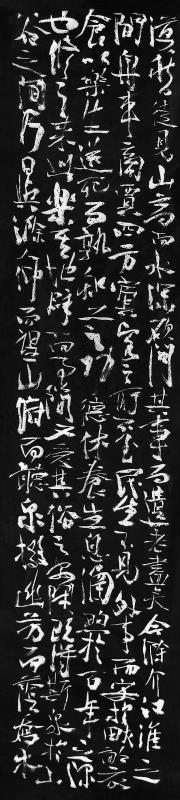 漠然徒見山高而水清欲問其事而遺老盡矣今滁介江淮之
間舟車商賈四方賓客之所不至民生不見外事而安於畎畝衣
食以樂生送死而孰知上之功德休養生息涵煦於百年之深
也修之來此樂其地僻而事簡又愛其俗之安閒既得斯泉於山
谷之間乃日與滁人仰而望山俯而聽泉掇幽芳而蔭喬木